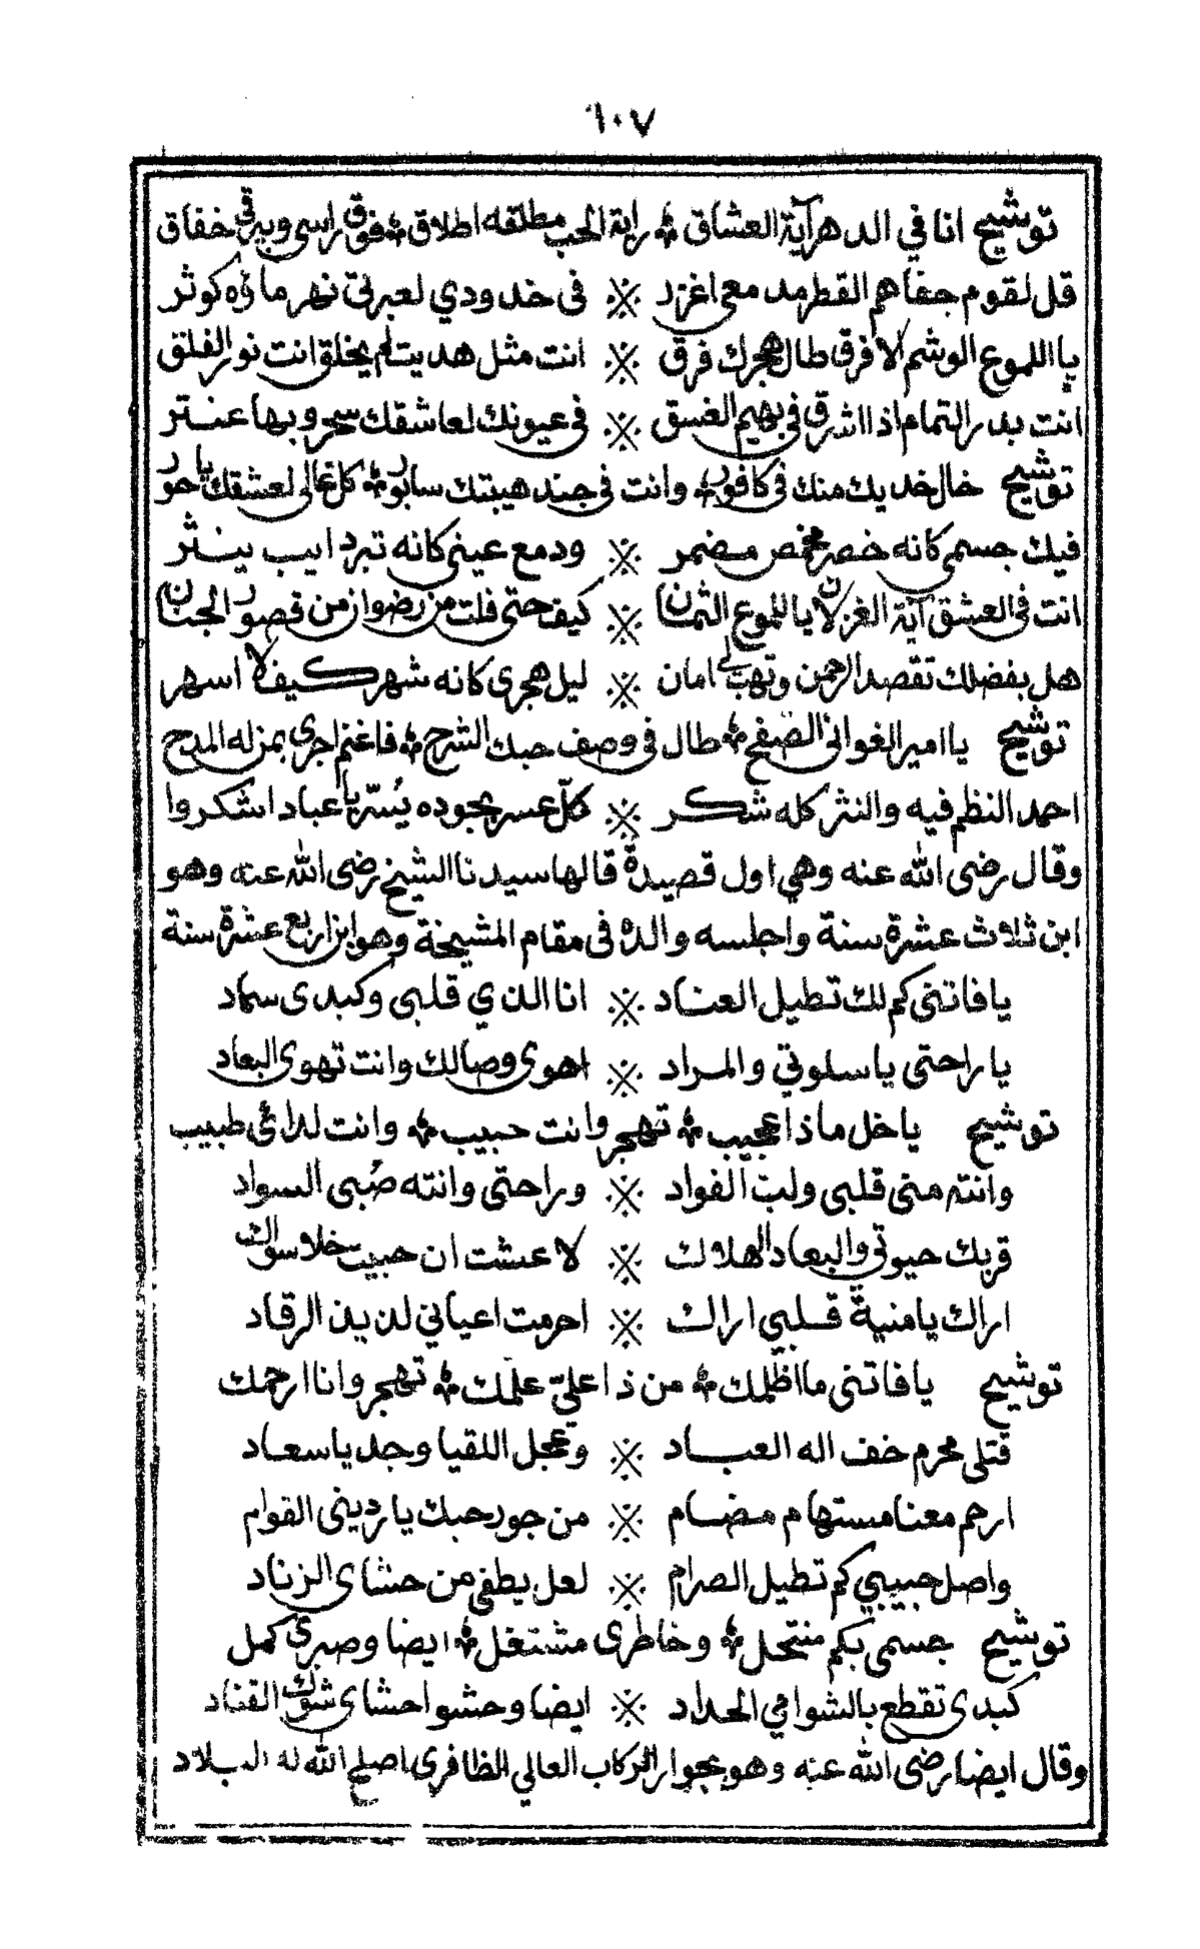 ٦٠٧
توشيح انا في الدهر آية العشاق ※ راية الحب مطلقه اطلاق ※ فوق راسي وبيرقي خفاق
قل لقوم جفاهم القطر مدمعي اغزر ※ في خدودي لعبرتي نهر ماؤه كوثر
يا اللموع الوشم لا فرق طال هجرك فرق ※ انت مثل هديت لم يخلق انت نور الفلق
انت بدر التمام اذا اشرق في بهيم الغسق ※ في عيونك لعاشقك سحر وبها عنتر
توشيح خال خديك منك في كافور ※ وانت في جند هيبتك سابور ※ كل غالي لعشقك يا حور
فيك جسمي كانه خصر مخمص مضمر ※ ودمع عيني كانه تبر دايب ينثر
انت في العشق آية الغزلان يا للموع الثمان ※ كيف حتى فلت من رضوان من قصور الجنان
هل بفضلك تقصد الرحمن وتهب لي امان ※ ليل هجري كانه شهر كيف لا اسهر
توشيح يا امير الغواني الصفح ※ طال في وصف حبك الشرح ※ فاغنم اجرى بمن له المدح
احمد النظم فيه والنثر كله شكر ※ كل عسر بجوده يسر يا عباد اشكروا
وقال رضي الله عنه وهي اول قصيدة قالها سيدنا الشيخ رضي الله عنه وهو
ابن ثلاث عشرة سنة واجلسه والده في مقام المشيخة وهو ابن اربع عشرة سنة
يا فاتني كم لك تطيل العناد ※ انا الذي قلبي وكبدي سماد
يا راحتي يا سلوتي والمراد ※ اهوى وصالك وانت تهوى البعاد
توشيح يا خل ماذا عجيب ※ تهجر وانت حبيب ※ وانت لدائي طبيب
وانته منى قلبي ولب الفواد ※ وراحتي وانته صبي السواد
قربك حيوتي والبعاد الهلاك ※ لا عشت ان حبيت خلا سواك
اراك يا منية قلبي اراك ※ احرمت اعياني لذيذ الرقاد
توشيح يا فاتني ما اظلمك ※ من ذا علي علمك ※ تهجر وانا ارحمك
قتلي محرم خف اله العباد ※ وعجل اللقيا وجد يا سعاد
ارحم معنا مستهام مضام ※ من جور حبك يا رديني القوام
واصل حبيبي كم تطيل الصرام ※ لعل يطفي من حشاي الزناد
توشيح جسمي بكم منتحل ※ وخاطري مشتغل ※ ايضا وصبري كمل
كبدي تقطع بالشوامي الحداد ※ ايضا وحشو احشاي شوك القتاد
وقال ايضا رضي الله عنه وهو بجوار الركاب العالي الظافري اصلح الله له البلاد